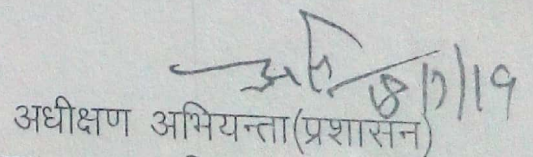 18/7/19
अधीक्षण अभियन्ता(प्रशासन)